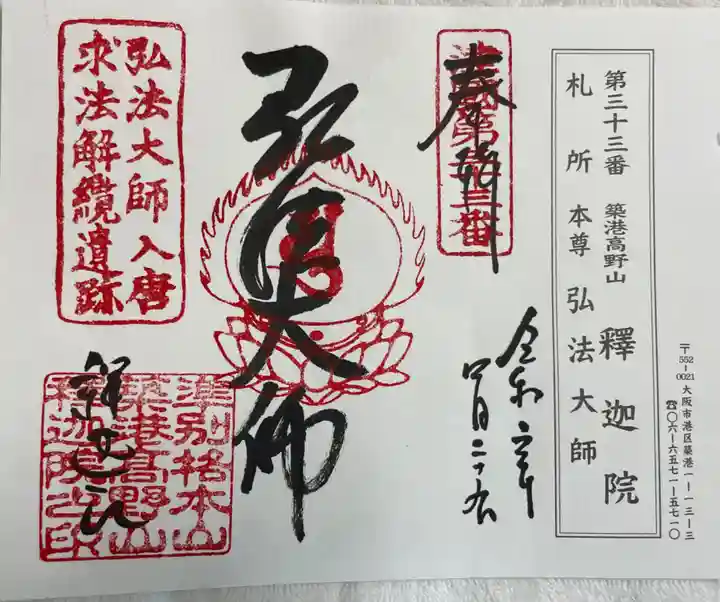 第三十三番 築港高野山 釋迦院
札所本尊 弘法大師
〒552-0021 大阪市港区築港一ー一三ー三
☎〇六ー六五七一ー五七一〇
奉拝
令和六年
四月二十九
弘法大師
弘法大師入唐
求法解纜遺跡
釋迦院
準別格本山
築港高野山
釋迦院之印